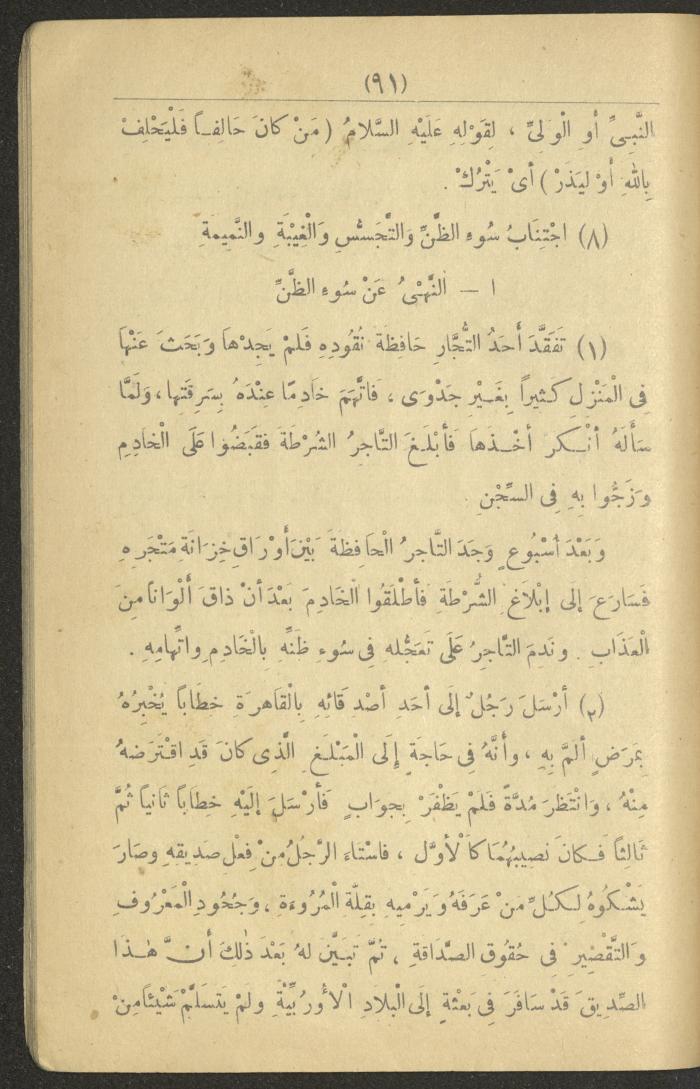 (٩١)
النَّبِىِّ أو الْوَلىِّ ، لِقَوْلِهِ عَلَيْهِ السَّلامُ ( مَنْ كانَ حَالِفاً فَلْيَحْلِفْ
بِاللهِ أوْ ليَذَرْ ) أىْ يَتْرُكْ .
(٨) اجْتِنَابُ سُوءِ الظَّنِّ وَالتَّجَسُّسِ وَالْغِيْبَةِ والنَّمِيمَةِ
١ — النَّهْىُ عَنْ سُوءِ الظَّنِّ
(١) تَفَقَّدَ أَحَدُ التُّجَّارِ حَافِظَةَ نُقُودِهِ فَلَمْ يَجِدْهَا وَبَحَثَ عَنْهَا
فِى الْمَنْزِلِ كَثيراً بِغَيْرِ جَدْوَى ، فَاتَّهَمَ خَادِمًا عِنْدَهُ بِسَرِقَتِها ، وَلَمَّا
سَأَلَهُ أنْكر أخْذَهَا فَأبْلَغَ التَّاجِرُ الشُرْطَةَ فقَبَضُوا عَلَى الْخَادِمِ
وَزَجُّوا بِهِ فِى السِّجْنِ .
وَبَعْدَ أسْبُوعٍ وَجَدَ التَّاجرُ الْحَافِظَةَ بَيْنَ أَوْرَاقِ خِزَانَةِ مَتْجَرِهِ
فَسَارَعَ إلَى إبْلَاغِ الشُّرْطَةِ فأطْلَقُوا الْخَادِمَ بَعْدَ أنْ ذاقَ أَلْوَاناً مِنَ
الْعَذَابِ . ونَدِمَ التَّاجِرُ عَلَى تَعَجُّلِه فِى سُوءِ ظَنِّهِ بِالْخَادِمِ واتِّهامِهِ .
(٢) أرْسَلَ رَجُلٌ إلَى أحَدِ أصْدِقَائِهِ بِالْقَاهرَةِ خطَاباً يُخْبِرُهُ
بِمَرَضٍ ألمَّ بِهِ ، وأنَّهُ فِى حَاجَةٍ إِلَى الْمَبْلَغِ الَّذِى كانَ قَدِ اقْتَرَضهُ
مِنْهُ ، وَانْتَظَرَ مُدَّةً فَلَمْ يَظْفَرْ بِجوَابٍ فَأرْسَلَ إلَيْهِ خِطَاباً ثَانياً ثُمَّ
ثَالِثاً فَكانَ نَصِيبُهُمَا كاَلْأوَّلِ ، فاسْتَاءَ الرَّجُلُ مِنْ فِعْلِ صَديقِهِ وصَارَ
يَشْكُوهُ لِكُلِّ مَنْ عَرَفَهُ وَيَرْمِيهِ بِقِلَّةِ الْمُرُوءَةِ ، وَجُحُودِ الْمَعْرُوفِ
وَالتَّقْصِيرِ فِى حُقُوقِ الصَّدَاقَةِ ، ثُمَّ تَبَيَّنَ لهُ بَعْدَ ذَلِكَ أنَّ هٰذَا
الصَّدِيقَ قَدْ سَافَرَ فِى بَعْثةٍ إلَى الْبِلَادِ الْأورُبِّيَّةِ ولَمْ يَتسَلَّمْ شَيْئًا مِنْ